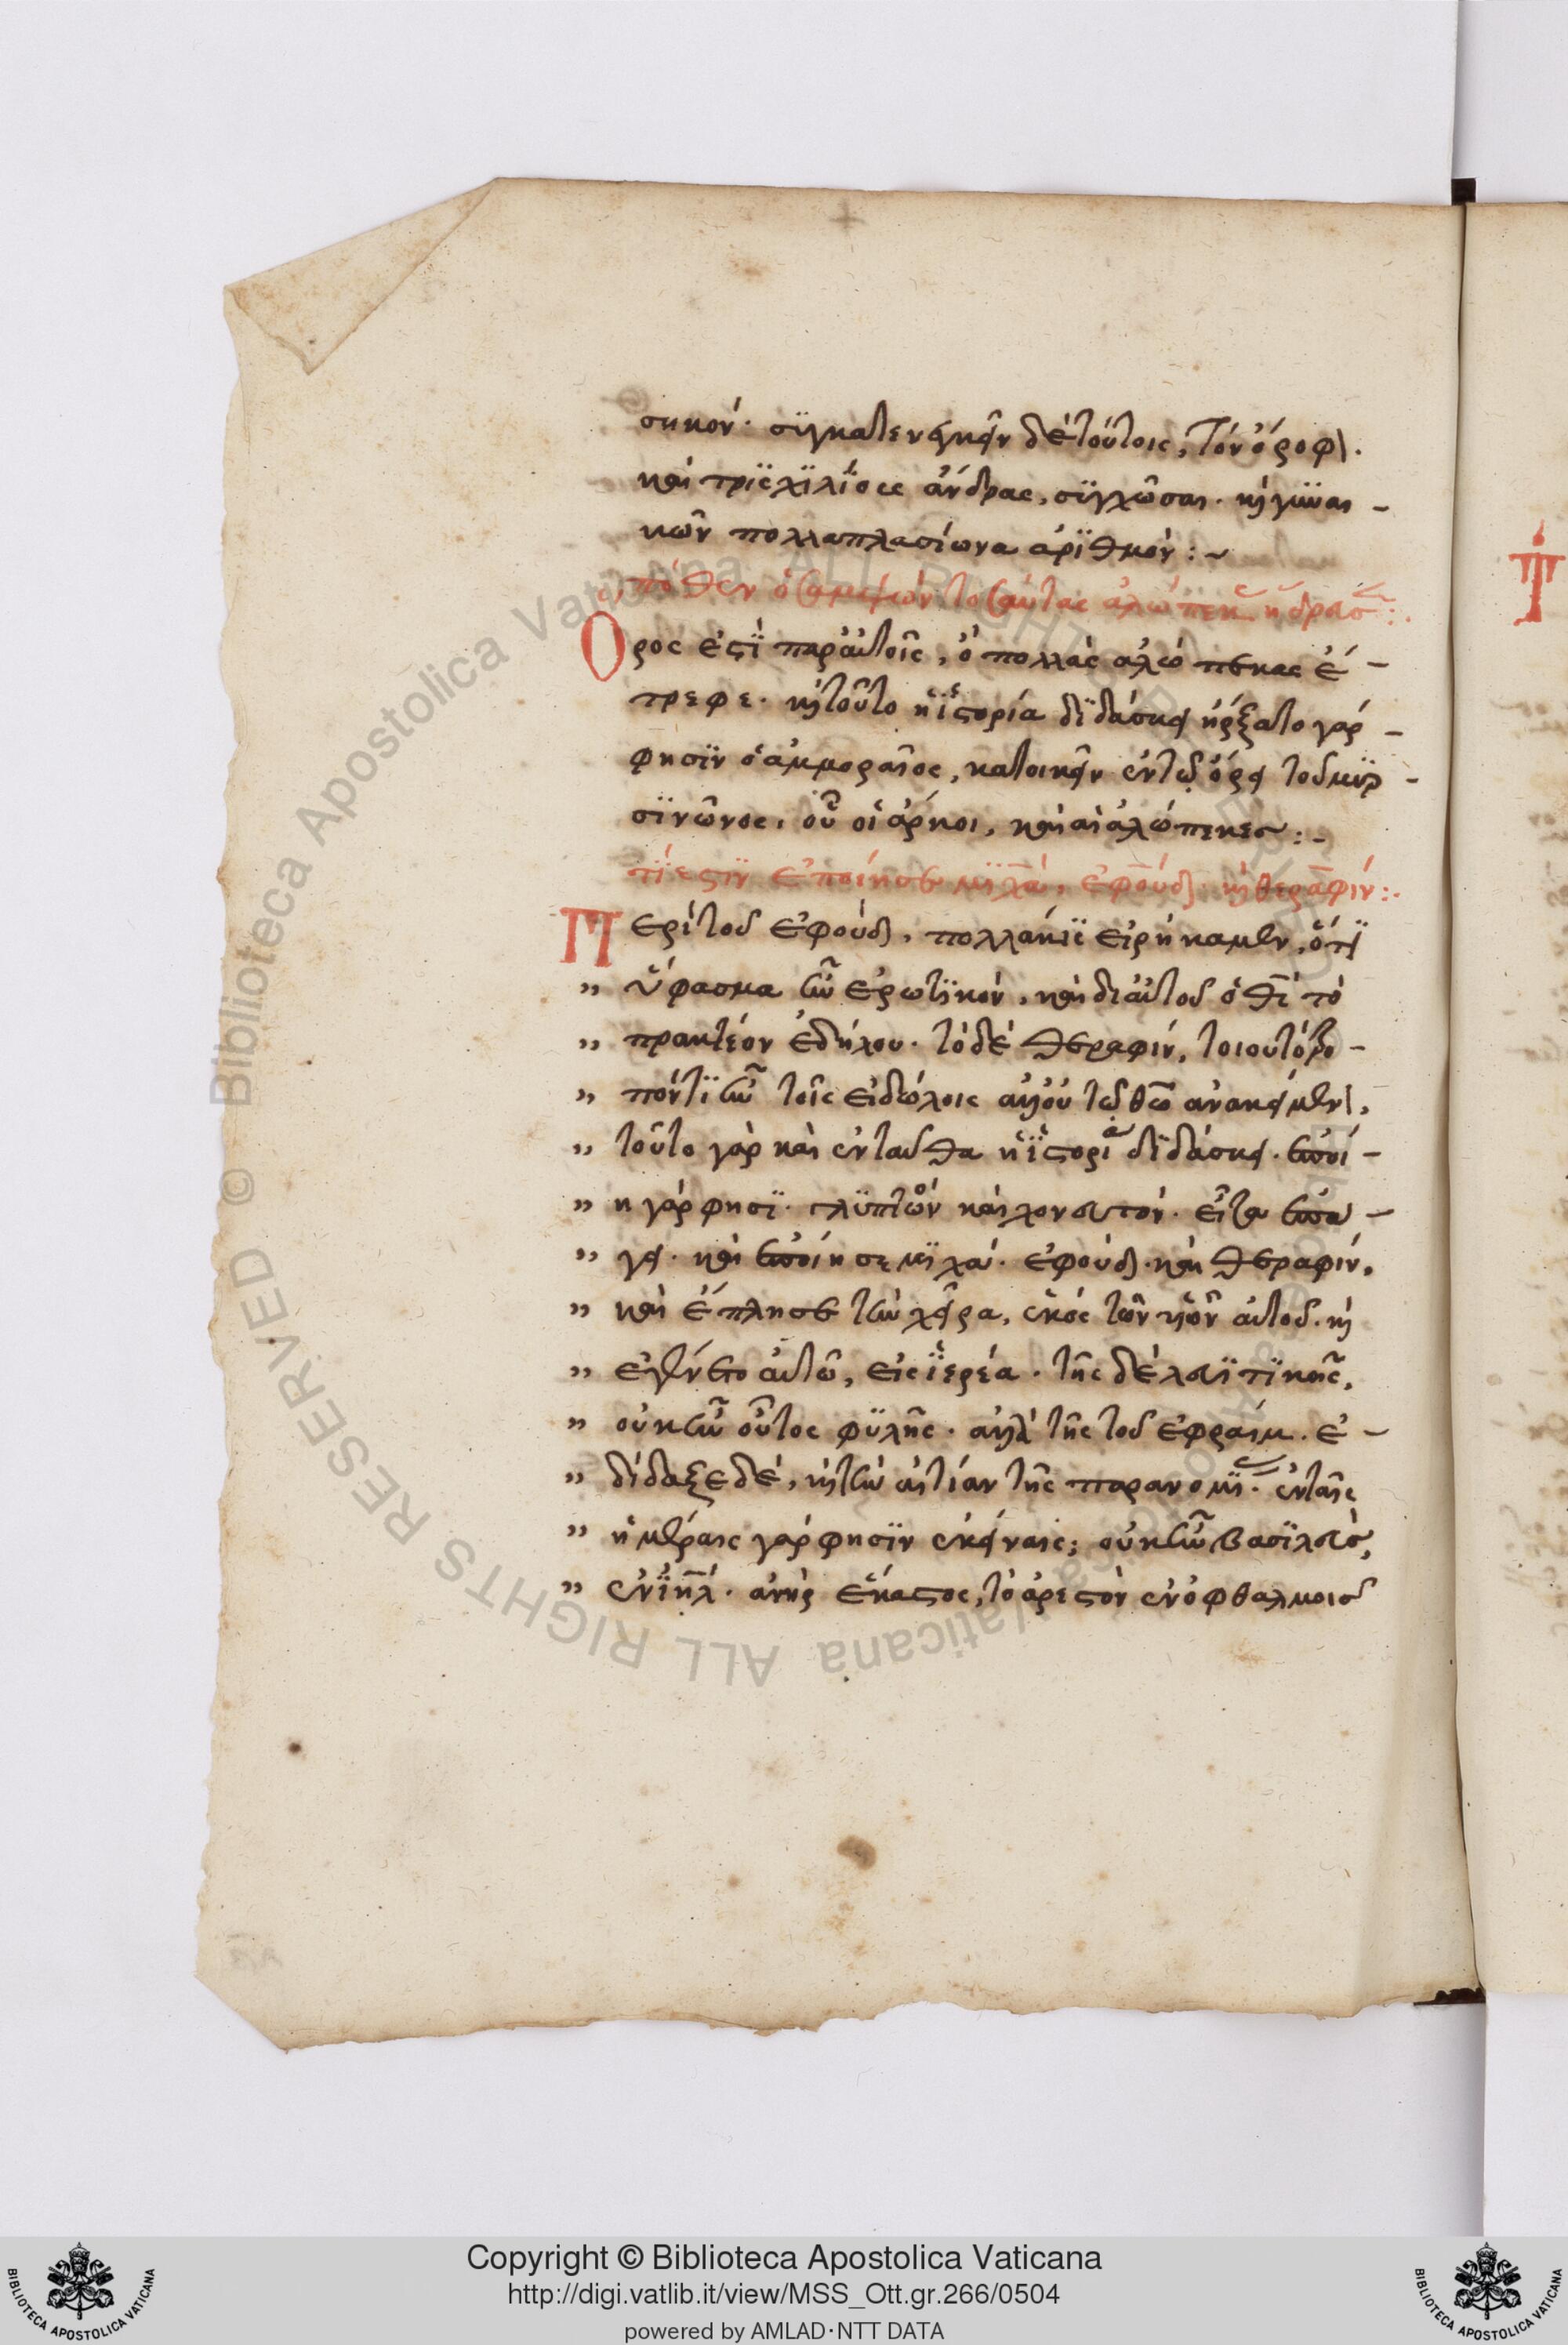 σηκόν· σϊγκατενεγκεῖν δὲ τούτοις, τὸν ὄροφ.
καὶ τρϊςχϊλίους ἄνδρας, σϋγχῶσαι· κὴ γϋναι-
κῶν πολλαπλασίωνα ἀρϊθμὸν:~
πόθεν ὁ σαμψὼν τοσαύτας ἀλώπεκας ἤδρασε:
Ὄρος ἐστϊ παρ' αὐτοῖς, ὃ πολλὰς ἀλώπεκας ἔ-
τρεφε· κὴ τοῦτο ἡ ἱστορία διδάσκει ἤρξατο γάρ-
φησϊν ὁ ἀμμοραῖος, κατοικεῖν ἐν τῷ ὄρει τοῦ μϋρ-
σϊνῶνος, οὗ οἱ ἄρκοι, καὶ αἱ ἀλώπεκες:-
τί ἐστϊν ἐποίησε μϊχά, ἐφοὺδ κὴ θεραφίν:-
Περὶ τοῦ ἐφοὺδ, πολλάκϊς εἰρήκαμεν, ὅτϊ
" ὕφασμα ἦν ἐρωτϊκὸν, καὶ δι' αὐτοῦ ὁ θς τὸ
" πρακτέον ἐδήλου· τὸ δὲ θεραφὶν, τοιουτότρο-
" πόν τϊ ἦν τοῖς εἰδώλοις ἀλλ' οὐ τῷ θῶ ἀνακείμεν,
" τοῦτο γὰρ καὶ ἐνταῦθα ἡ ἱστορία διδάσκει· ἐποί-
" η γάρ φησϊ· γλϋπτὸν καὶ χονευτόν· εἶτα ἐπα-
" γει· καὶ ἐποίησε μϊχά· ἐφοὺδ· καὶ θεραφίν,
" καὶ ἔπλησε τὴν χεῖρα, ἑνὸς τῶν υἱῶν αὐτοῦ· κὴ
" ἐγένετο αὐτῶ, εἰς ἱερέα· τῆς δὲ λευϊτϊκῆς,
" οὐκ ἦν οὗτος φϋλῆς· ἀλλὰ τῆς τοῦ ἐφραίμ· ἐ-
" δίδαξε δὲ, κὴ τὴν αἰτίαν τῆς παρανομϊας· ἐν ταῖς
" ἡμέραις γάρ φησϊν ἐκείναις; οὐκ ἦν βασϊλεὺς,
" ἐν ϊηλ· ἀνὴρ ἕκαστος, τὸ ἀρεστὸν ἐν ὀφθαλμοις
Copyright © Biblioteca Apostolica Vaticana
http://digi.vatlib.it/view/MSS_Ott.gr.266/0504
powered by AMLAD·NTT DATA
BIBLIOTECA APOSTOLICA VATICANA
BIBLIOTECA APOSTOLICA VATICANA
© Biblioteca Apostolica Vaticana ALL RIGHTS RESERVED